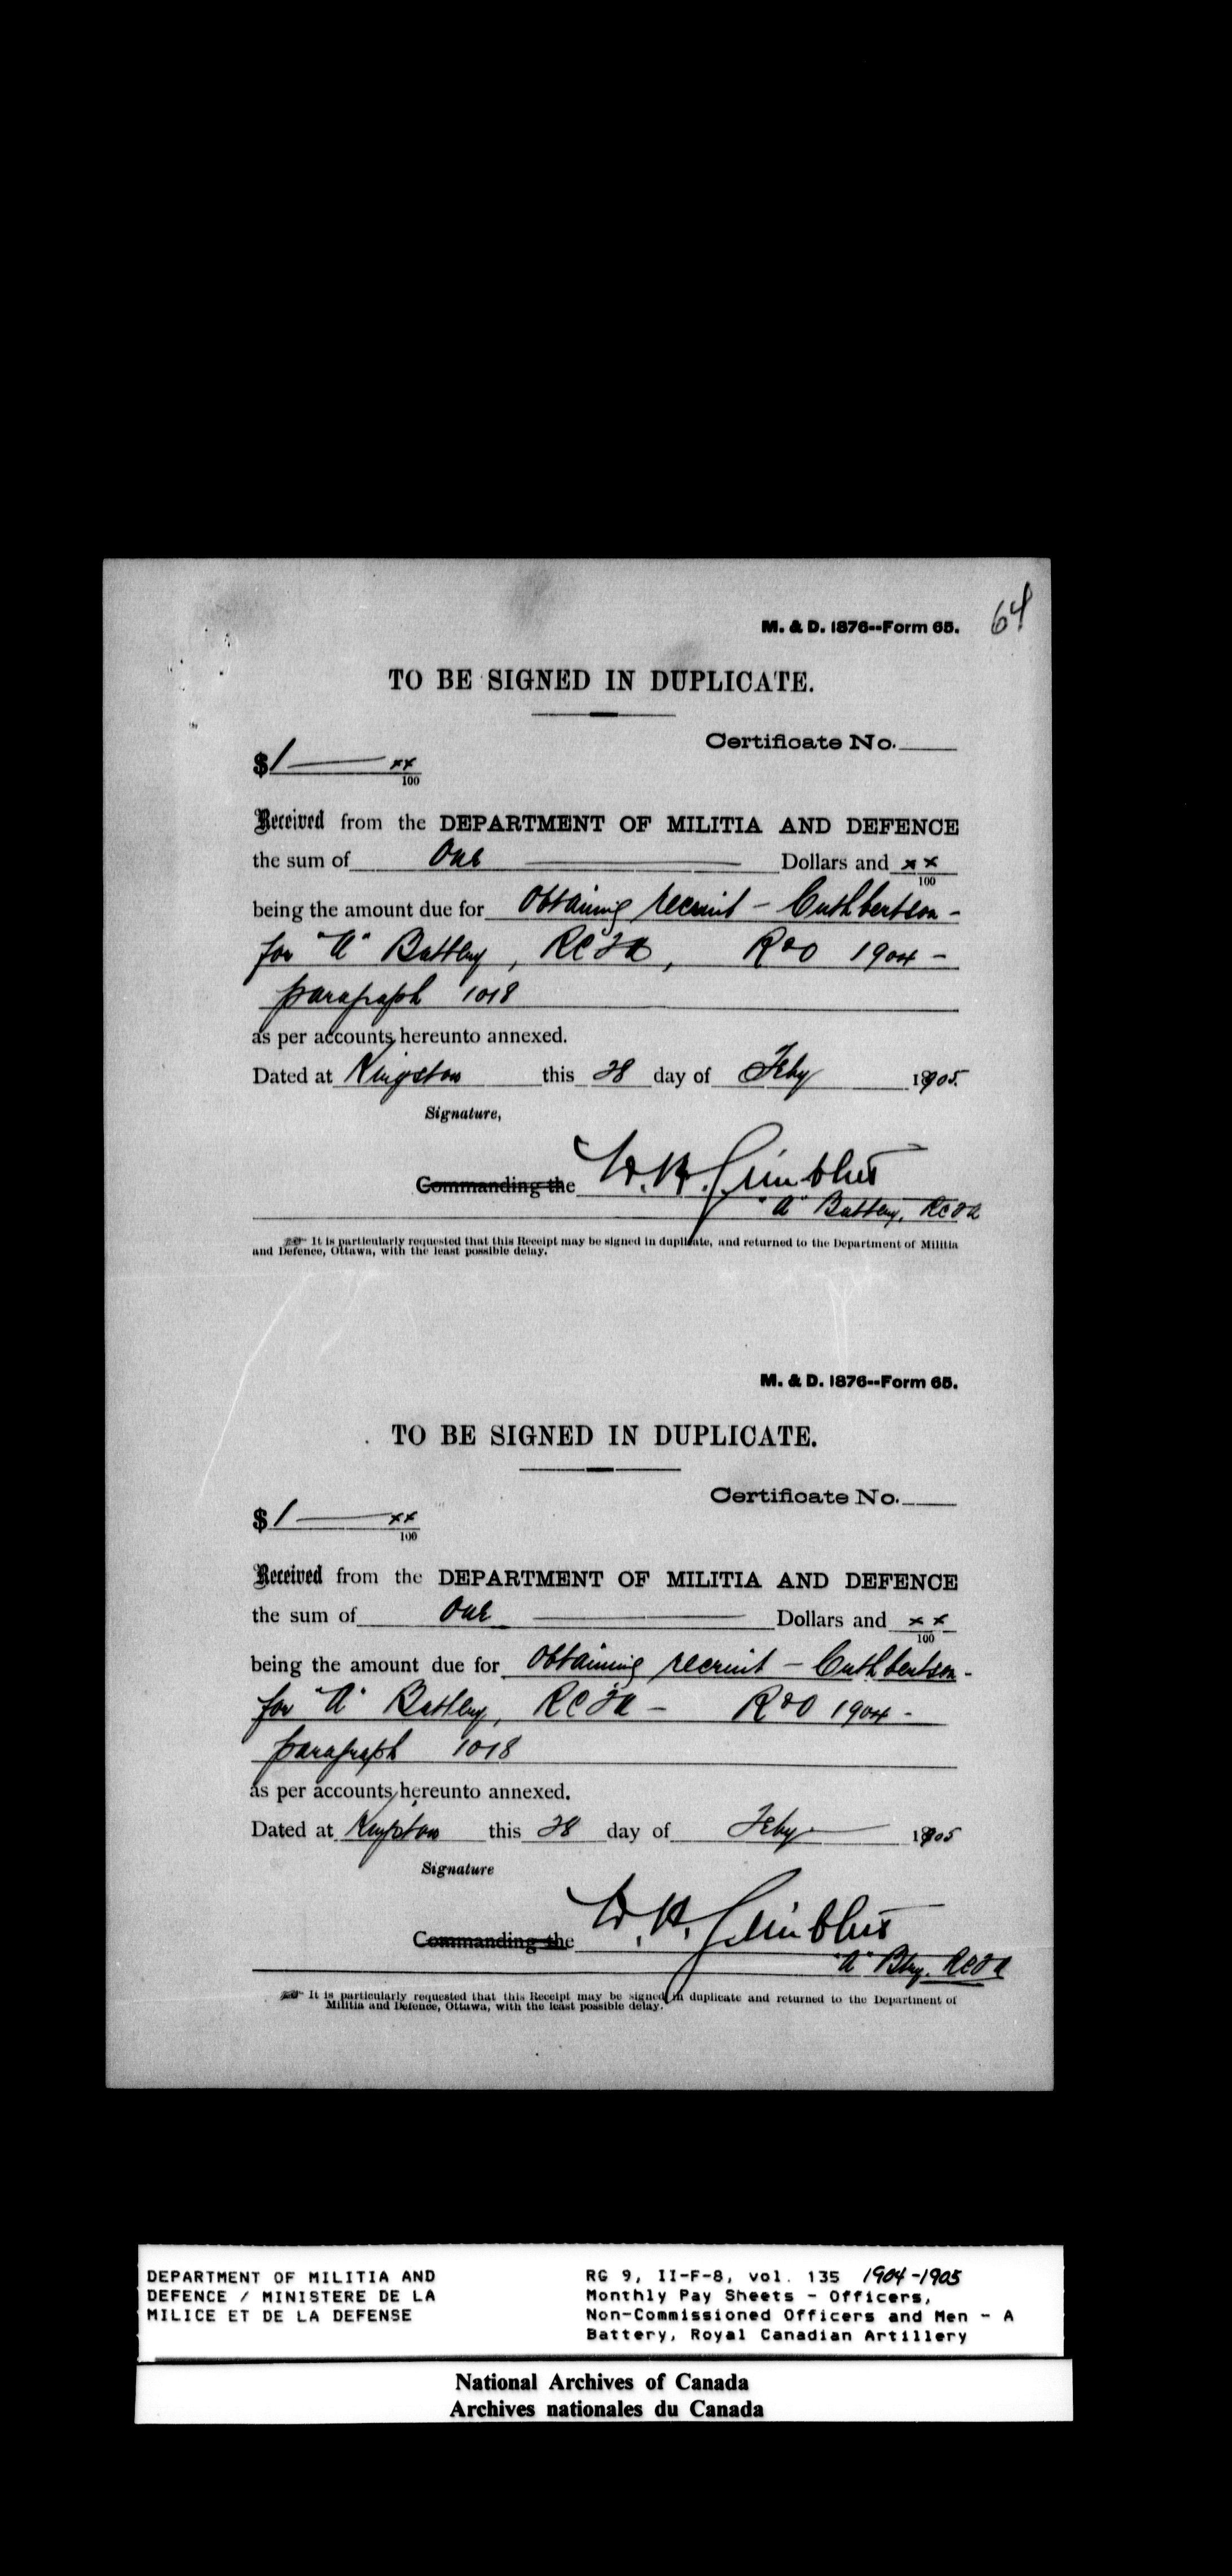 64
M. & D. 1876--Form 65.
TO BE SIGNED IN DUPLICATE.
Certificate No.
$ 1 — xx
100
Received from the DEPARTMENT OF MILITIA AND DEFENCE
the sum of One Dollars and x x
100
being the amount due for Obtaining recruit - Cuthbertson -
for "A" Battery, RCFA, R&O 1904 -
paragraph 1018
as per accounts hereunto annexed.
Dated at Kingston this 28 day of Feby 1905.
Signature,
Commanding the W. H.
"A" Battery, RCFA
It is particularly requested that this Receipt may be signed in duplicate, and returned to the Department of Militia
and Defence, Ottawa, with the least possible delay.
M. & D. 1876--Form 65.
TO BE SIGNED IN DUPLICATE.
Certificate No.
$ 1 — xx
100
Received from the DEPARTMENT OF MILITIA AND DEFENCE
the sum of One Dollars and x x
100
being the amount due for Obtaining recruit - Cuthbertson -
for "A" Battery, RCFA - R&O 1904 -
paragraph 1018
as per accounts hereunto annexed.
Dated at Kingston this 28 day of Feby 1905
Signature
Commanding the W. H.
"A" Bty. RCFA
It is particularly requested that this Receipt may be signed in duplicate and returned to the Department of
Militia and Defence, Ottawa, with the least possible delay.
DEPARTMENT OF MILITIA AND
DEFENCE / MINISTERE DE LA
MILICE ET DE LA DEFENSE
RG 9, II-F-8, vol. 135 1904-1905
Monthly Pay Sheets - Officers,
Non-Commissioned Officers and Men - A
Battery, Royal Canadian Artillery
National Archives of Canada
Archives nationales du Canada